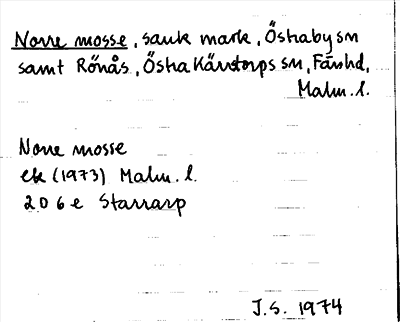 Norre mosse, sank mark, Östraby sn
samt Rönås, Östra Kärrstorps sn, Färshd,
Malm. l.
Norre mosse
ek (1973) Malm. l.
2 D 6 e Starrarp
J.S. 1974